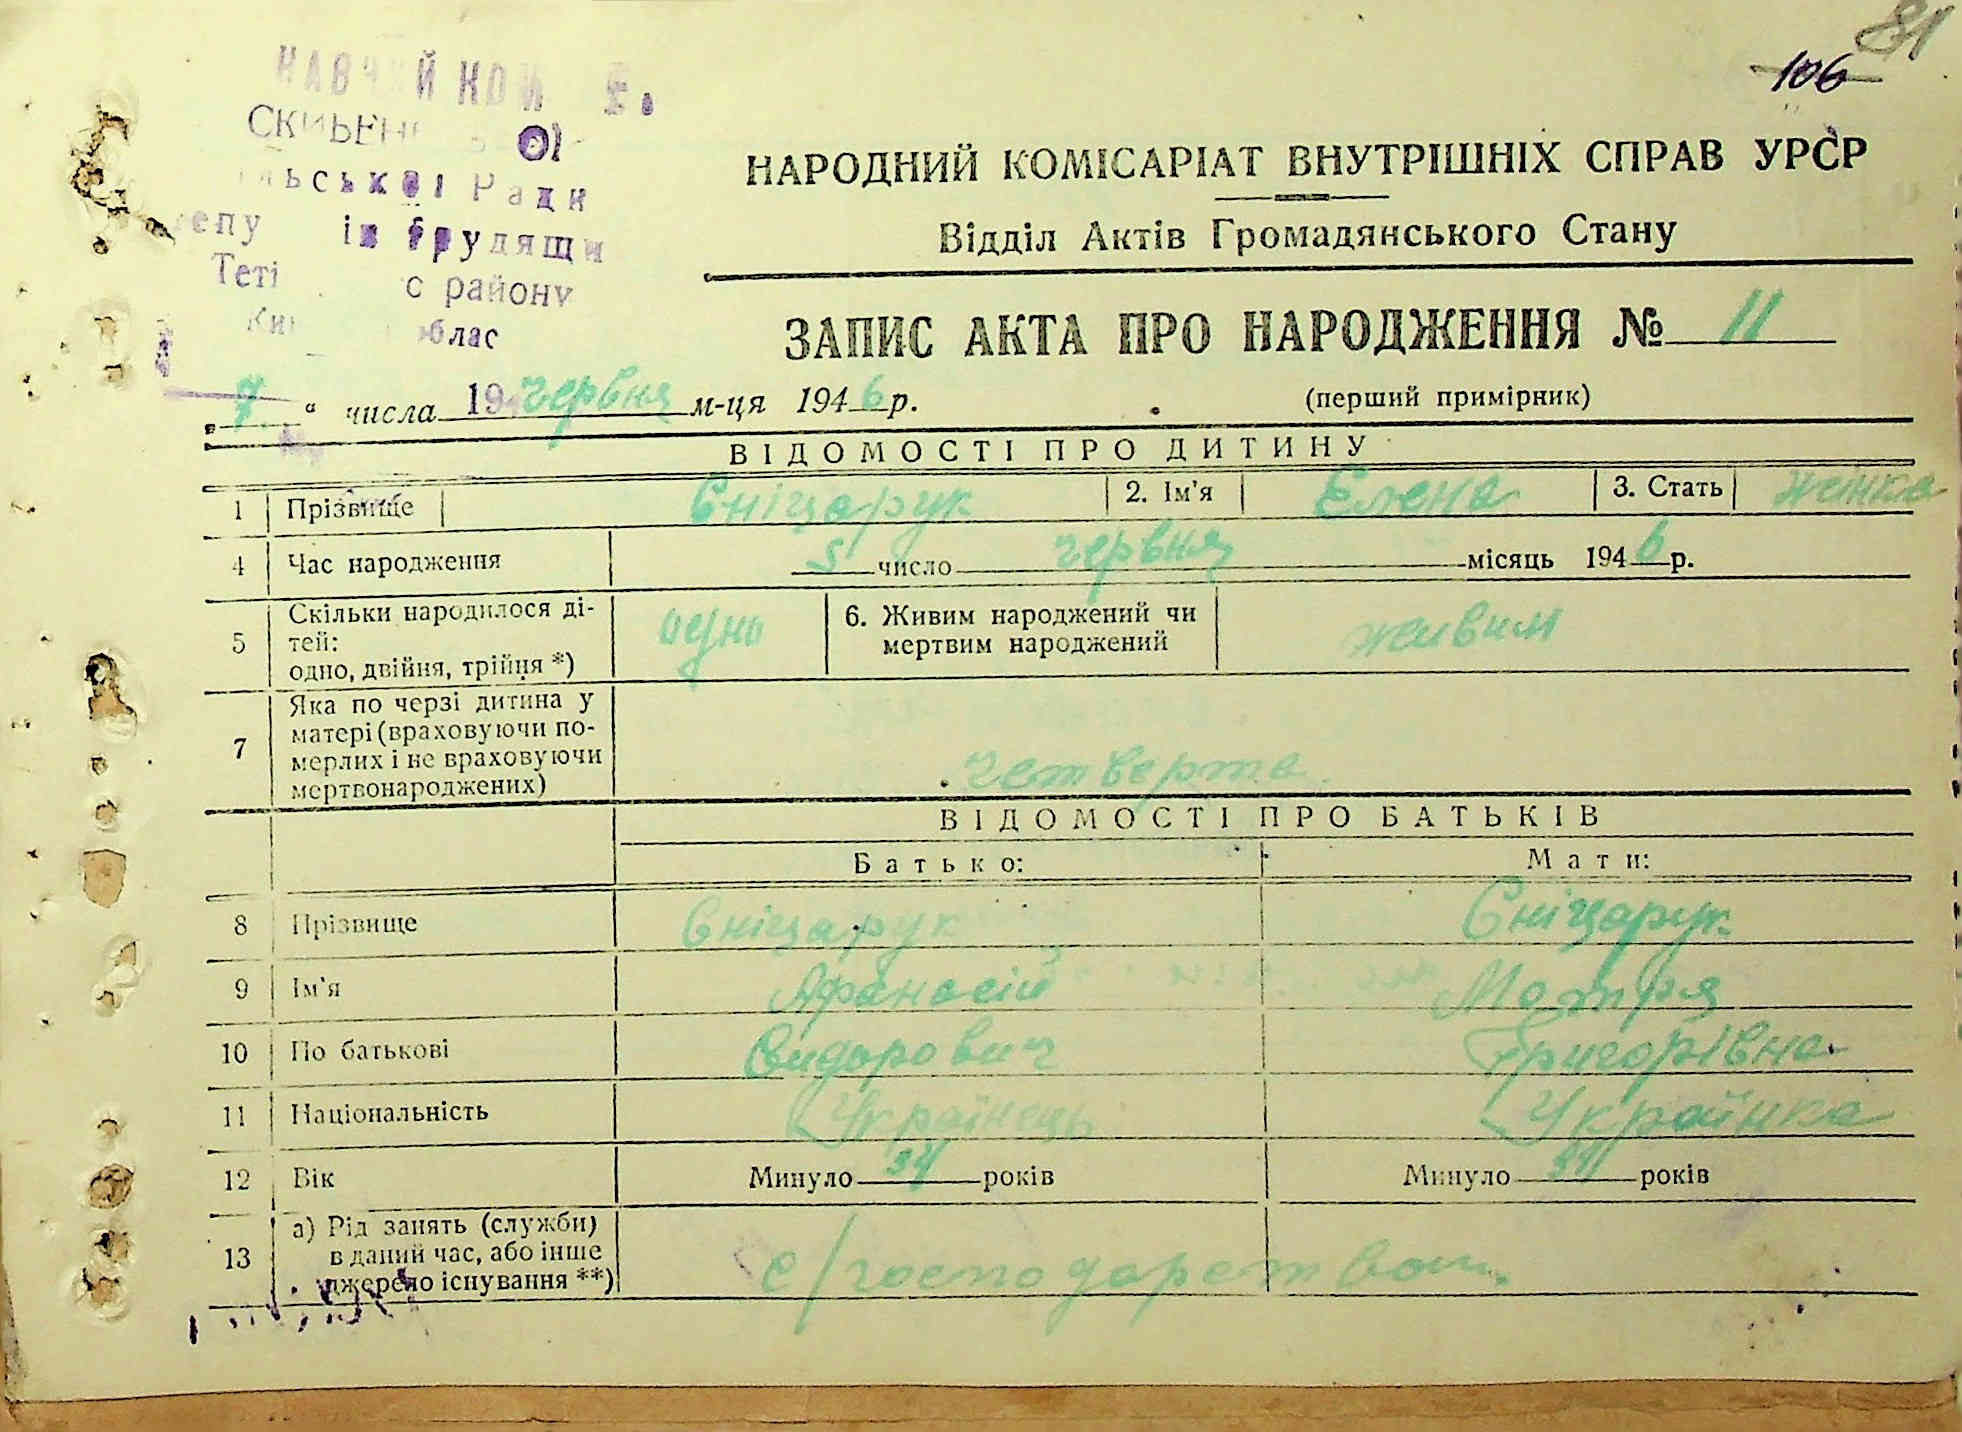 81
106
НАРОДНИЙ КОМІСАРІАТ ВНУТРІШНІХ СПРАВ УРСР
Відділ Актів Громадянського Стану
Ради
району
ЗАПИС АКТА ПРО НАРОДЖЕННЯ № 11
„7“ числа 19 червня м-ця 1946 р. (перший примірник)
ВІДОМОСТІ ПРО ДИТИНУ
1 Прізвище Сніцарук 2. Ім'я Елена 3. Стать жінка
4 Час народження 5 число червня місяць 1946 р.
5 Скільки народилося ді-
тей:
одно, двійня, трійця *) одно 6. Живим народжений чи
мертвим народжений живим
7 Яка по черзі дитина у
матері (враховуючи по-
мерлих і не враховуючи
мертвонароджених) четверта
ВІДОМОСТІ ПРО БАТЬКІВ
Батько: Мати:
8 Прізвище Сніцарук Сніцарук
9 Ім'я Афанасій Мотря
10 По батькові Сидорович Григорівна
11 Національність Українець Українка
12 Вік Минуло 34 років Минуло 34 років
13 а) Рід занять (служби)
в даний час, або інше
джерело існування **) с/господарством